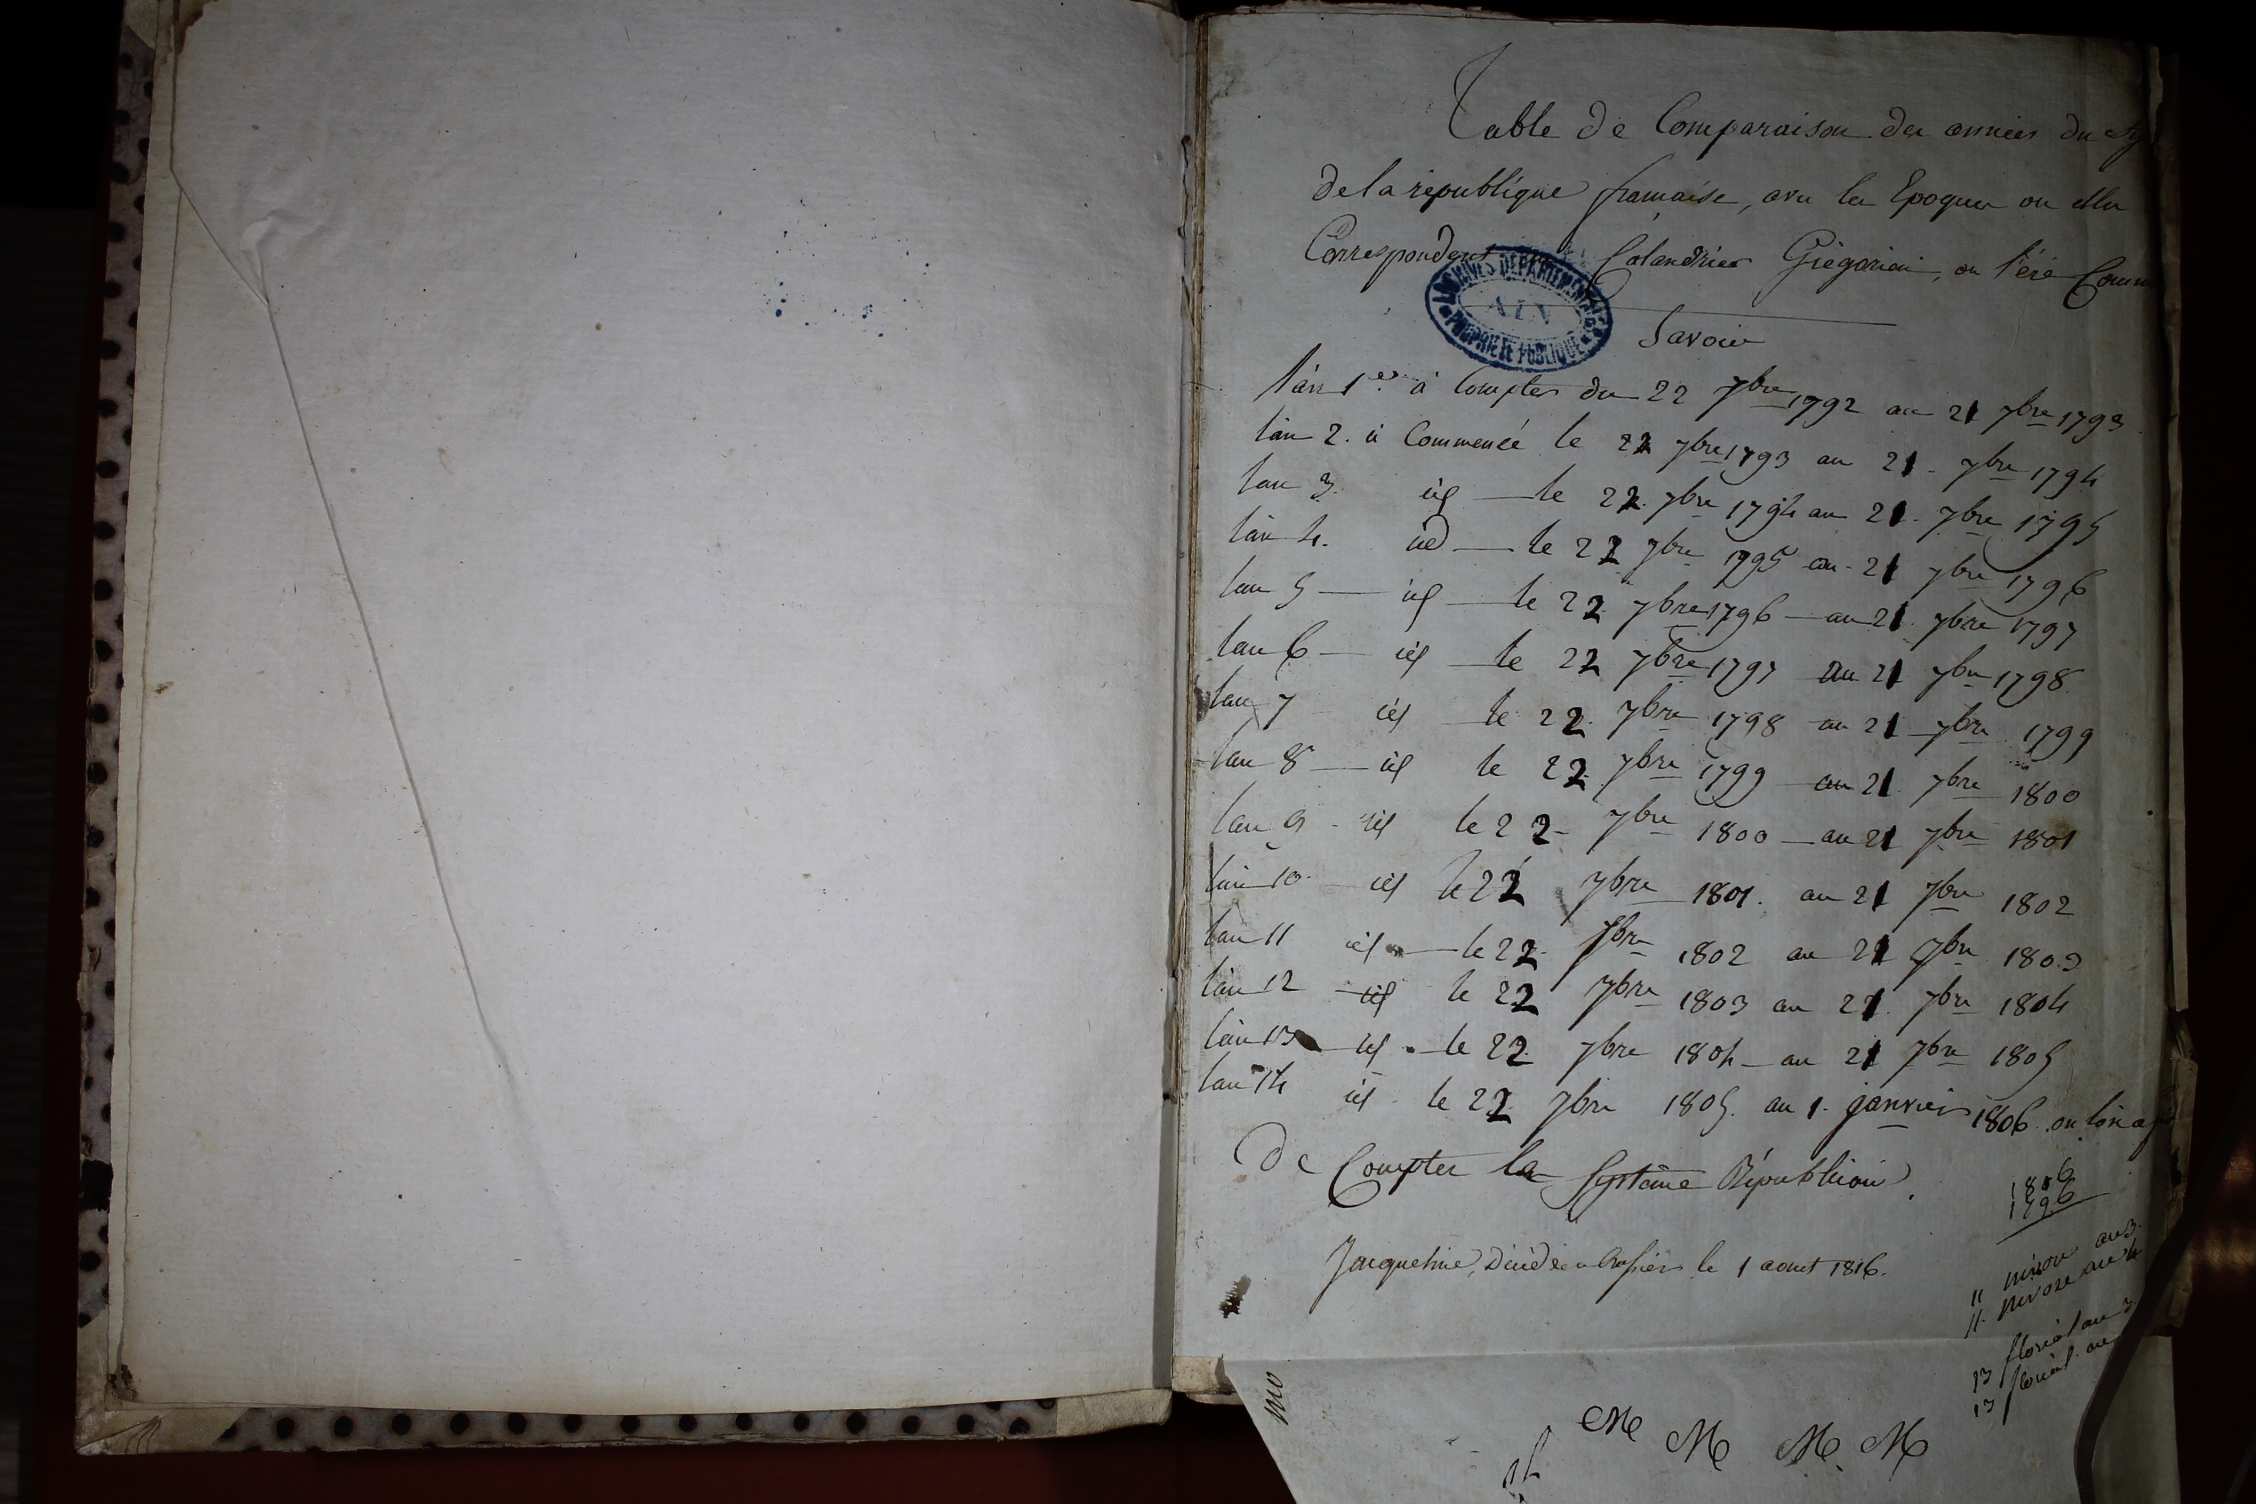 Table de Comparaison des années du
de la république française, avec les Epoques ou elles
Correspondent Calandrier Grégorien, ou l'ére Comm
ARCHIVES DÉPARTEMENTALES
AIN
PROPRIÉTÉ PUBLIQUE
Savoir
l'an 1er à Compter du 22 7bre 1792 au 21 7bre 1793
l'an 2. à Commencé le 22 7bre 1793 au 21 7bre 1794
l'an 3. id le 22 7bre 1794 au 21 7bre 1795
l'an 4. id le 22 7bre 1795 au 21 7bre 1796
l'an 5 id le 22 7bre 1796 au 21 7bre 1797
l'an 6 id le 22 7bre 1797 au 21 7bre 1798
l'an 7 id le 22 7bre 1798 au 21 7bre 1799
l'an 8 id le 22 7bre 1799 au 21 7bre 1800
l'an 9 id le 22 7bre 1800 au 21 7bre 1801
l'an 10 id le 22 7bre 1801. au 21 7bre 1802
l'an 11 id le 22 7bre 1802 au 21 7bre 1803
l'an 12 id le 22 7bre 1803 au 21 7bre 1804
l'an 13 id le 22 7bre 1804 au 21 7bre 1805
l'an 14 id le 22 7bre 1805. au 1. janvier 1806 ou l'on a
De Compter le Systême Républicain.
1806
1796
Jacquetine, le 1 aout 1816.
11 nivose an 3.
11. nivose an 4
13 floréal an 3
13 floréal an
M M M. M